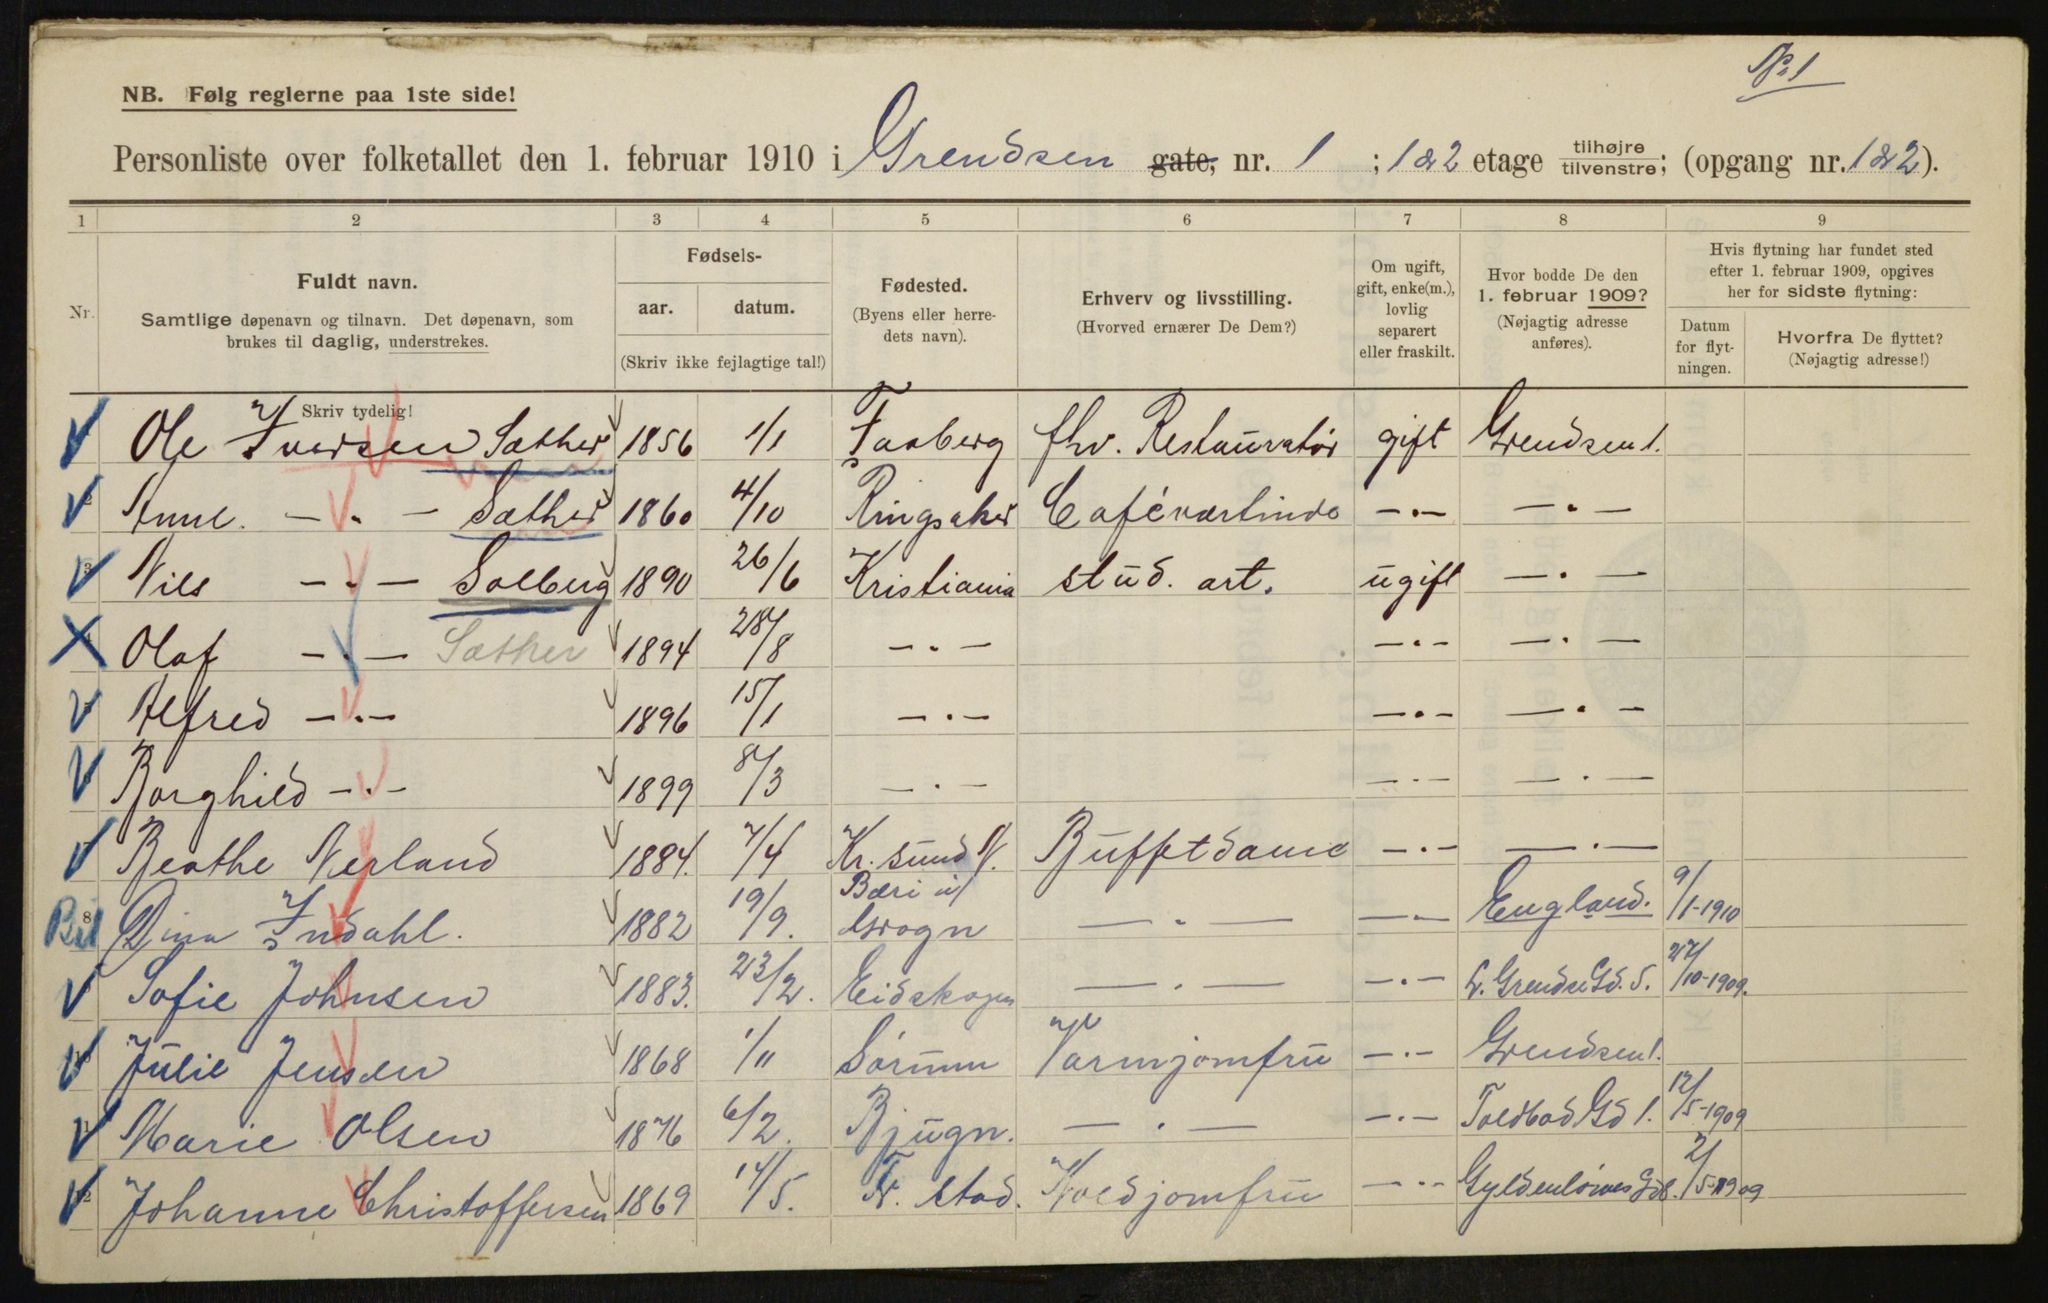 No 1
NB. Følg reglerne paa 1ste side!
Personliste over folketallet den 1. februar 1910 i Grendsen gate, nr. 1 ; 1 & 2 etage tilhøjre/tilvenstre; (opgang nr. 1 & 2).
1 2 3 4 5 6 7 8 9
Nr.
Fuldt navn.
Samtlige døpenavn og tilnavn. Det døpenavn, som
brukes til daglig, understrekes.
Skriv tydelig!
Fødsels-
aar. datum.
(Skriv ikke fejlagtige tal!)
Fødested.
(Byens eller herre-
dets navn).
Erhverv og livsstilling.
(Hvorved ernærer De Dem?)
Om ugift,
gift, enke(m.),
lovlig
separert
eller fraskilt.
Hvor bodde De den
1. februar 1909?
(Nøjagtig adresse
anføres).
Hvis flytning har fundet sted
efter 1. februar 1909, opgives
her for sidste flytning:
Datum
for flyt-
ningen.
Hvorfra De flyttet?
(Nøjagtig adresse!)
Ole Iversen Sæther 1856 1/1 Faaberg fhv. Restauratør gift Grendsen 1.
2 Anne. — . — Sæther 1860 4/10 Ringsaker Caféværtinde — . — — . —
3 Nils — . — Solberg 1890 26/6 Kristiania stud. art. ugift — . —
Olaf — . — Sæther 1894 28/8 — . — — . — — . —
Alfred — . — 1896 15/1 — . — — . — — . —
Borghild — . — 1899 8/3 — . — — . — — . —
Beathe Nerland 1884. 7/4 Kr. sund N. Buffetdame — . — — . —
8 Dina Indahl. 1882 19/9. — . — — . — England. 9/1-1910
Sofie Johnsen 1883. 23/2. Eidskogen — . — — . — L. Grendse Gd. 5. 27/10-1909.
10 Julie Jensen 1868 1/11 Sørum Varmjomfru — . — Grendsen 1.
11 Marie Olsen 1876 6/2. Bjugn. — . — — . — Toldbod Gd 1. 12/5-1909
12 Johanne Christoffersen 1869 14/5. Fr. stad. Koldjomfru — . — Gyldenløves Gd 8. 2/5-1909